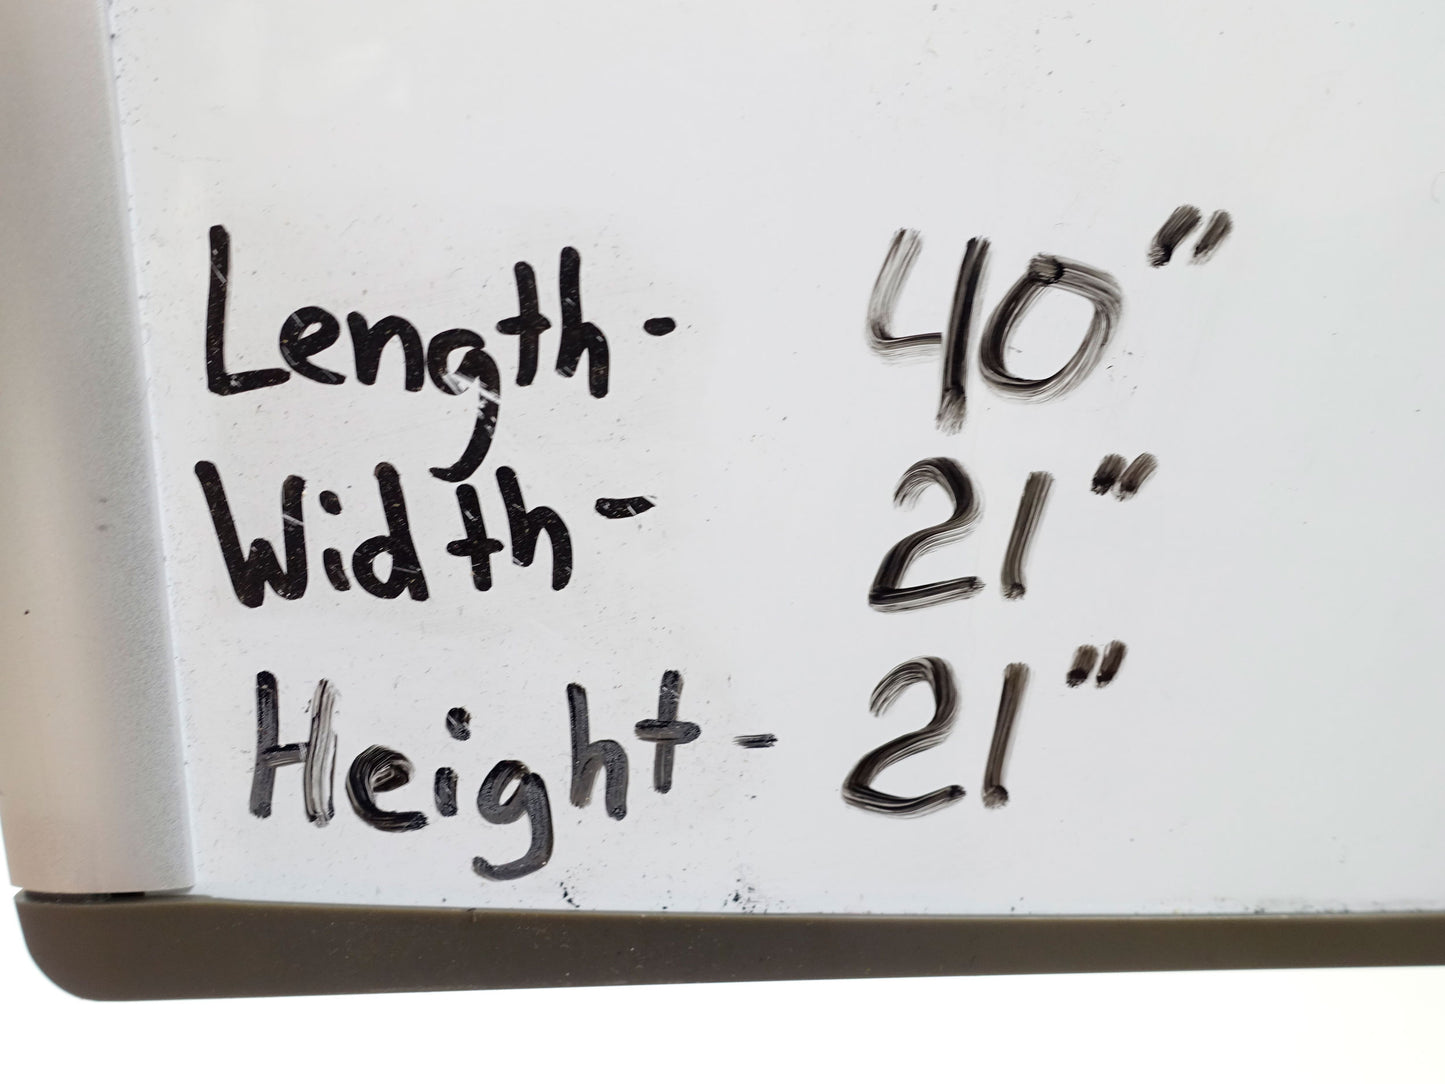 Length - 40"
Width - 21"
Height - 21"